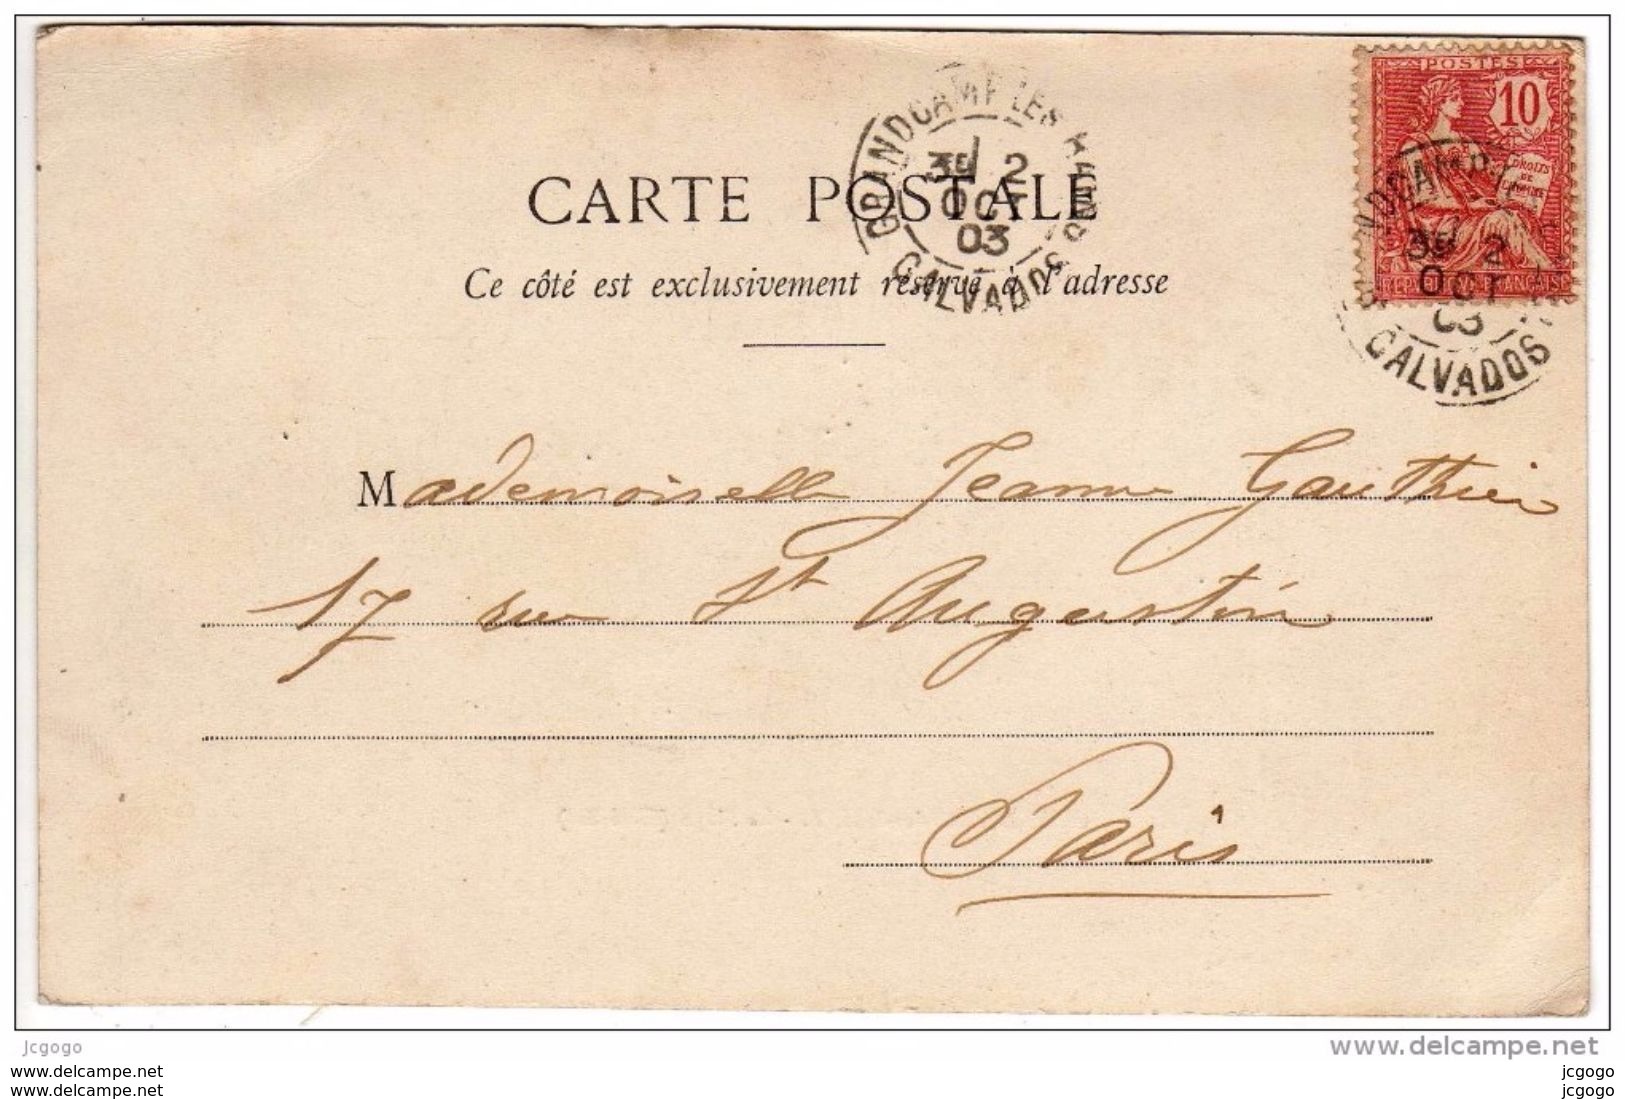 POSTES
10
DROITS
DE
L'HOMME
GRANDCAMP LES BAINS
3E 2
OCT
03
CALVADOS
CARTE POSTALE
3E 2
OCT
03
CALVADOS
Ce côté est exclusivement réservé à l'adresse
Mademoiselle Jeanne Gauthier
17 rue St Augustin
Paris
jcgogo
www.delcampe.net
www.delcampe.net
www.delcampe.net
jcgogo
jcgogo